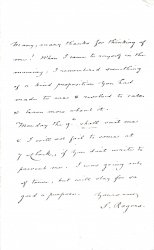 Many, many thanks for thinking of
me! When I came to myself in the
morning, I remembered something
of a kind proposition you had
made to me & resolved to
learn more about it.
Monday the 9th will suit me
& I will not fail to come at
7 o'clock, if you don't write to
prevent me. I was going out
of town, but will stay for so
good a purpose.
Yours ever,
J. Rogers